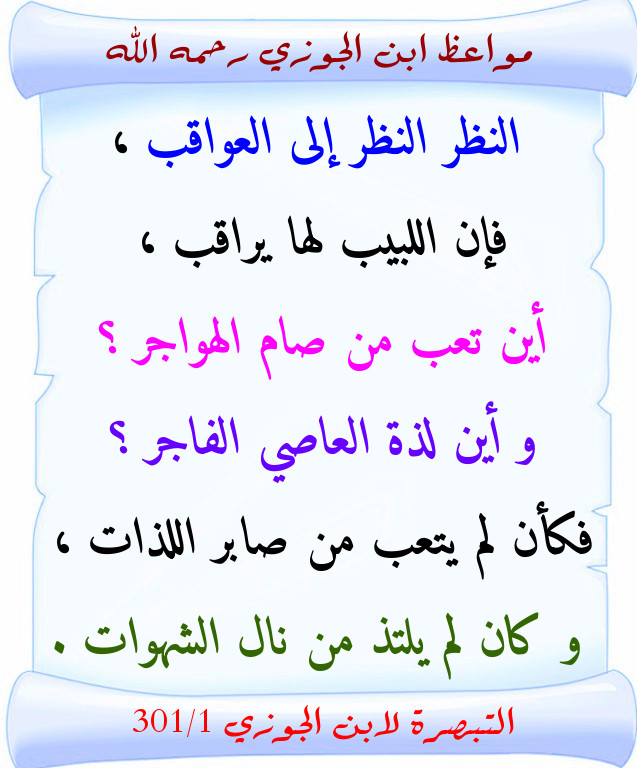 مواعظ ابن الجوزي رحمه الله
النظر النظر إلى العواقب ،
فإن اللبيب لها يراقب ،
أين تعب من صام الهواجر ؟
و أين لذة العاصي الفاجر ؟
فكأن لم يتعب من صابر اللذات ،
و كان لم يلتذ من نال الشهوات .
التبصرة لابن الجوزي 301/1